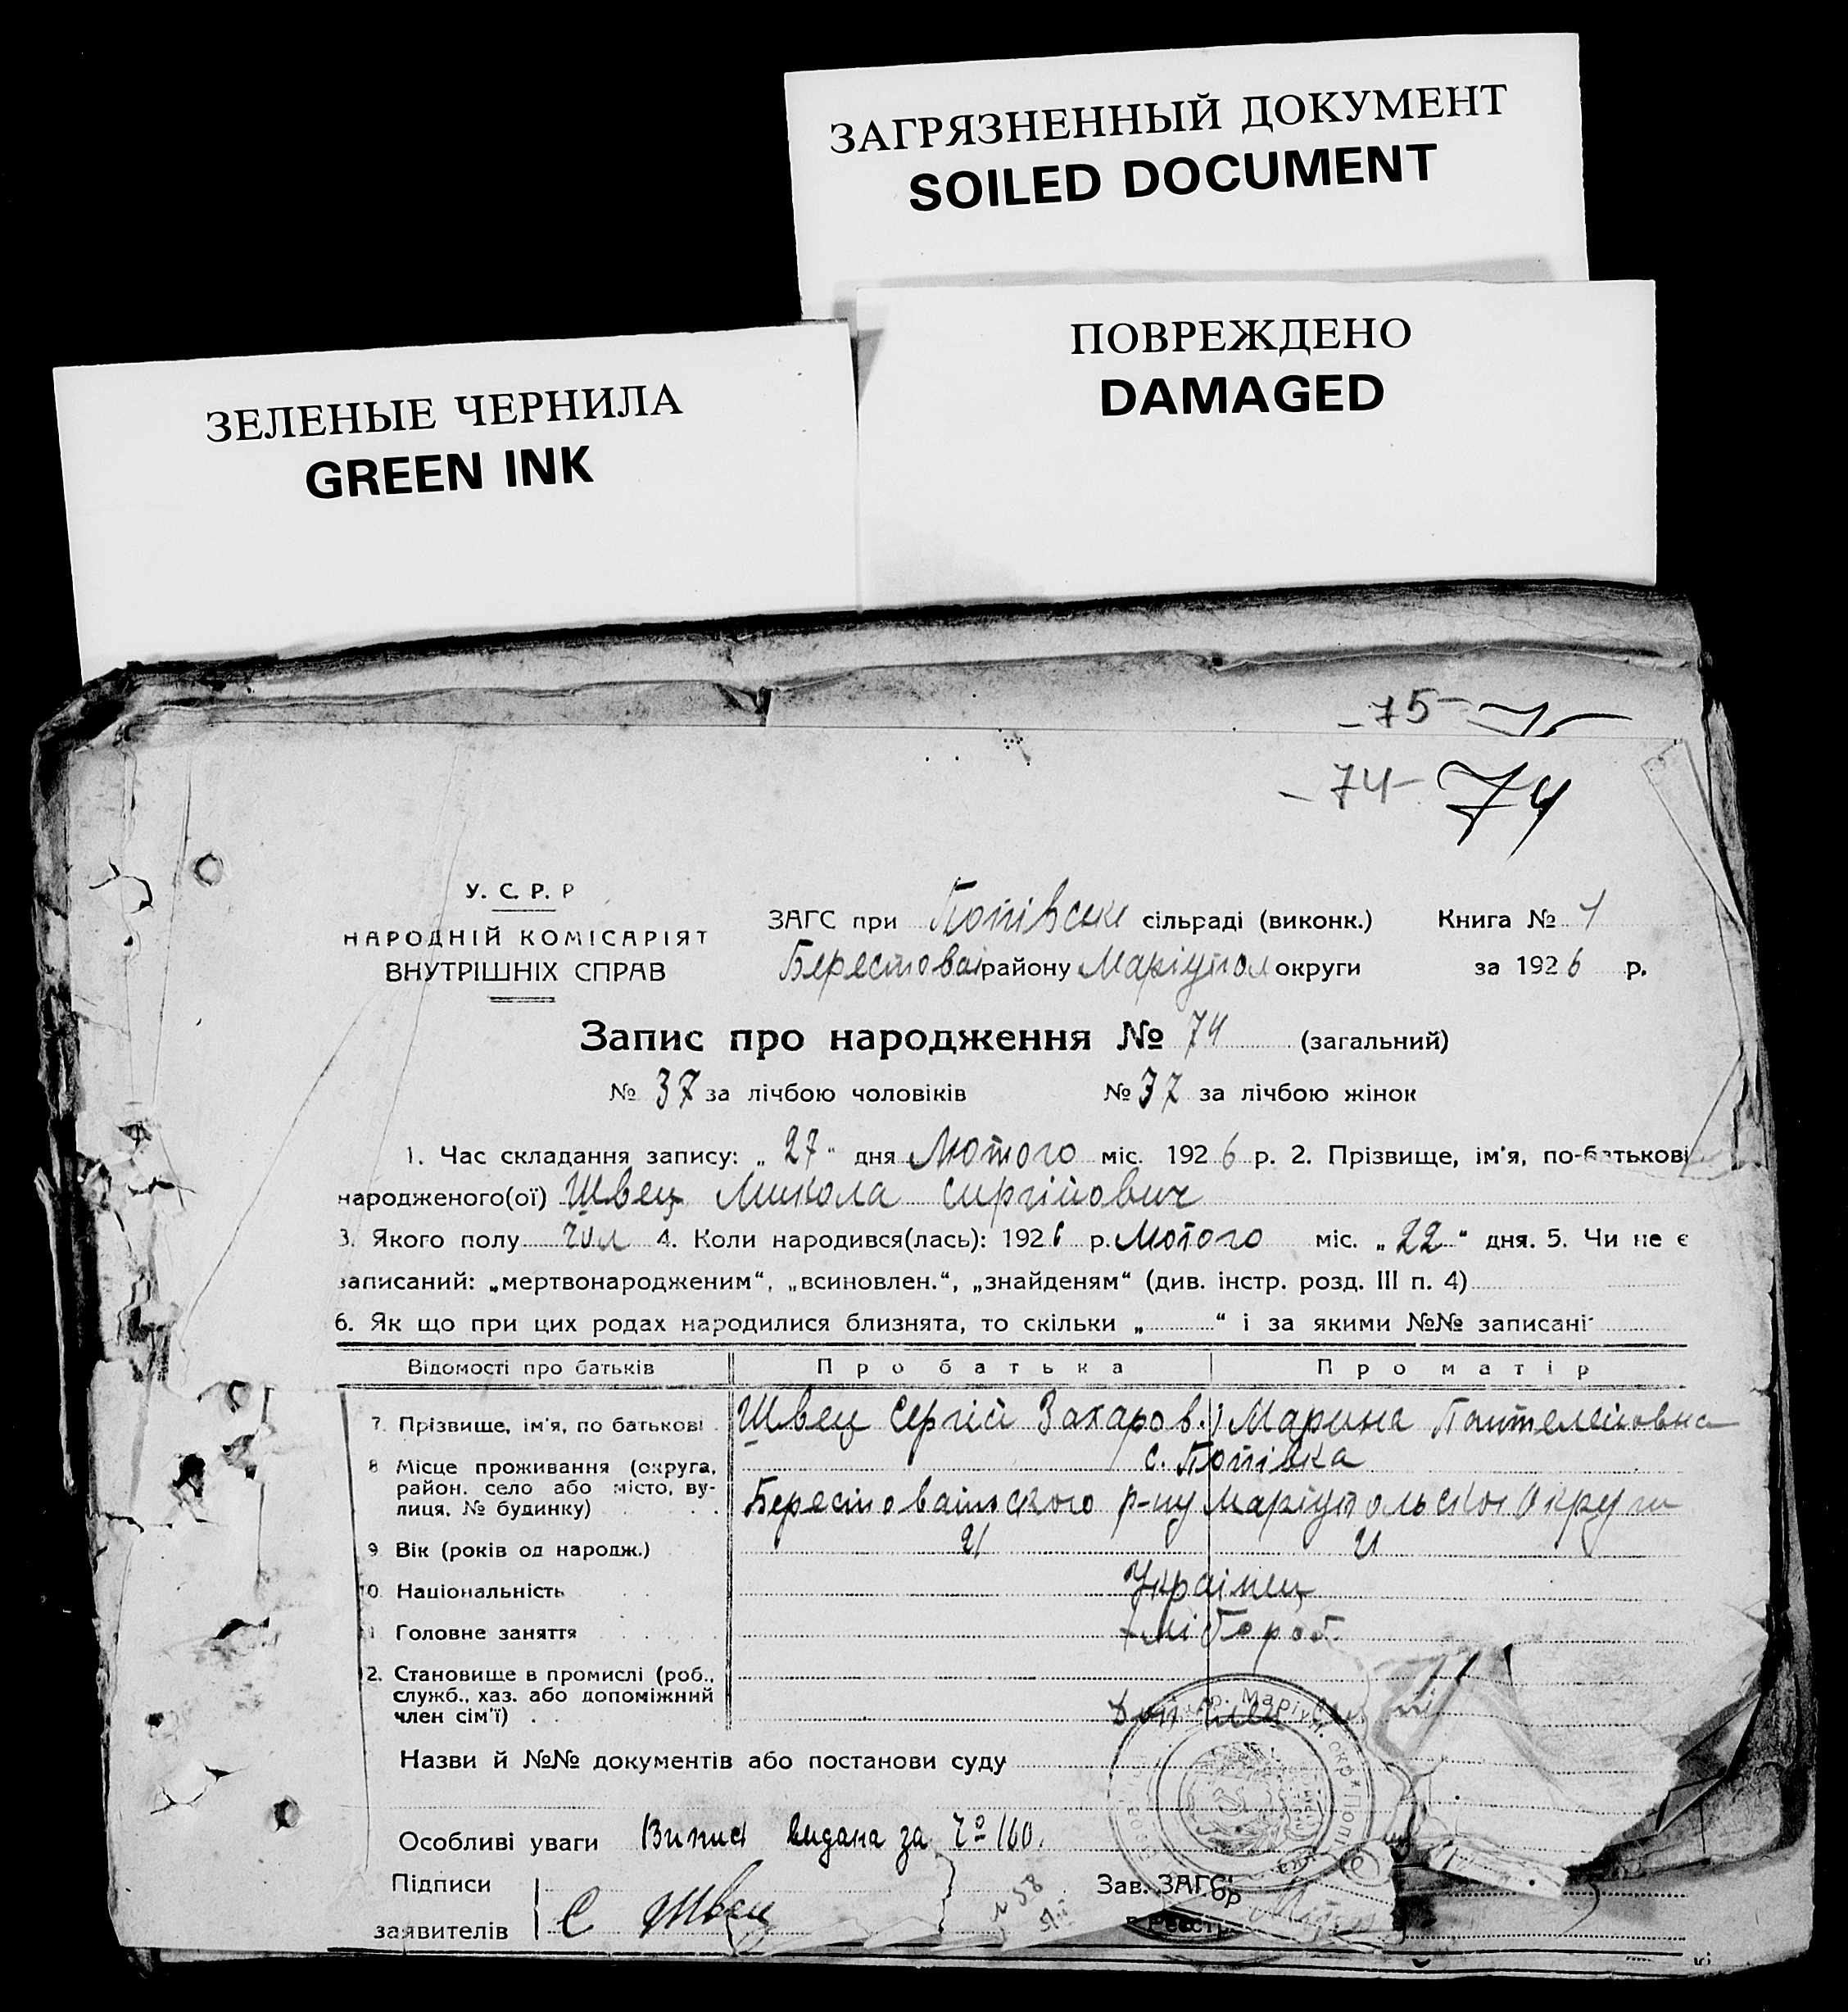 ЗАГРЯЗНЕННЫЙ ДОКУМЕНТ
SOILED DOCUMENT
ПОВРЕЖДЕНО
DAMAGED
ЗЕЛЕНЫЕ ЧЕРНИЛА
GREEN INK
-75-
-74- 74
У. С. Р. Р
НАРОДНІЙ КОМІСАРІЯТ
ВНУТРІШНІХ СПРАВ
ЗАГС при Попівські сільраді (виконк.) Книга № 1
Берестова району Маріупол округи за 1926 р.
Запис про народження № 74 (загальний)
№ 37 за лічбою чоловіків № 37 за лічбою жінок
1. Час складання запису: „ 27 " дня Лютого міс. 1926 р. 2. Прізвище, ім'я, по-батькові
народженого(ої) Швец Микола Сиргійович
3. Якого полу чол 4. Коли народився(лась): 1926 р. Лютого міс. „ 22 " дня. 5. Чи не є
записаний: „мертвонародженим“, „всиновлен.“, „знайденям“ (див. інстр. розд. III п. 4)
6. Як що при цих родах народилися близнята, то скільки „ “ і за якими №№ записані
Відомості про батьків Про батька Про матір
7. Прізвище, ім'я, по батькові Швец Сергій Захаров. Марина Пантелеиовна
8 Місце проживання (округа, с. Попівка
район. село або місто, ву-
лиця, № будинку) Берестованьского р-ну Маріупольскої Округи
9. Вік (років од народж.) 21 21
10. Національність Украінец
11. Головне заняття хлібороб.
12. Становище в промислі (роб.,
служб., хаз. або допоміжний
член сім'ї) Доп член
Назви й №№ документів або постанови суду
Особливі уваги Випис видана за № 160.
Підписи
заявителів С Швец
Зав. ЗАГС